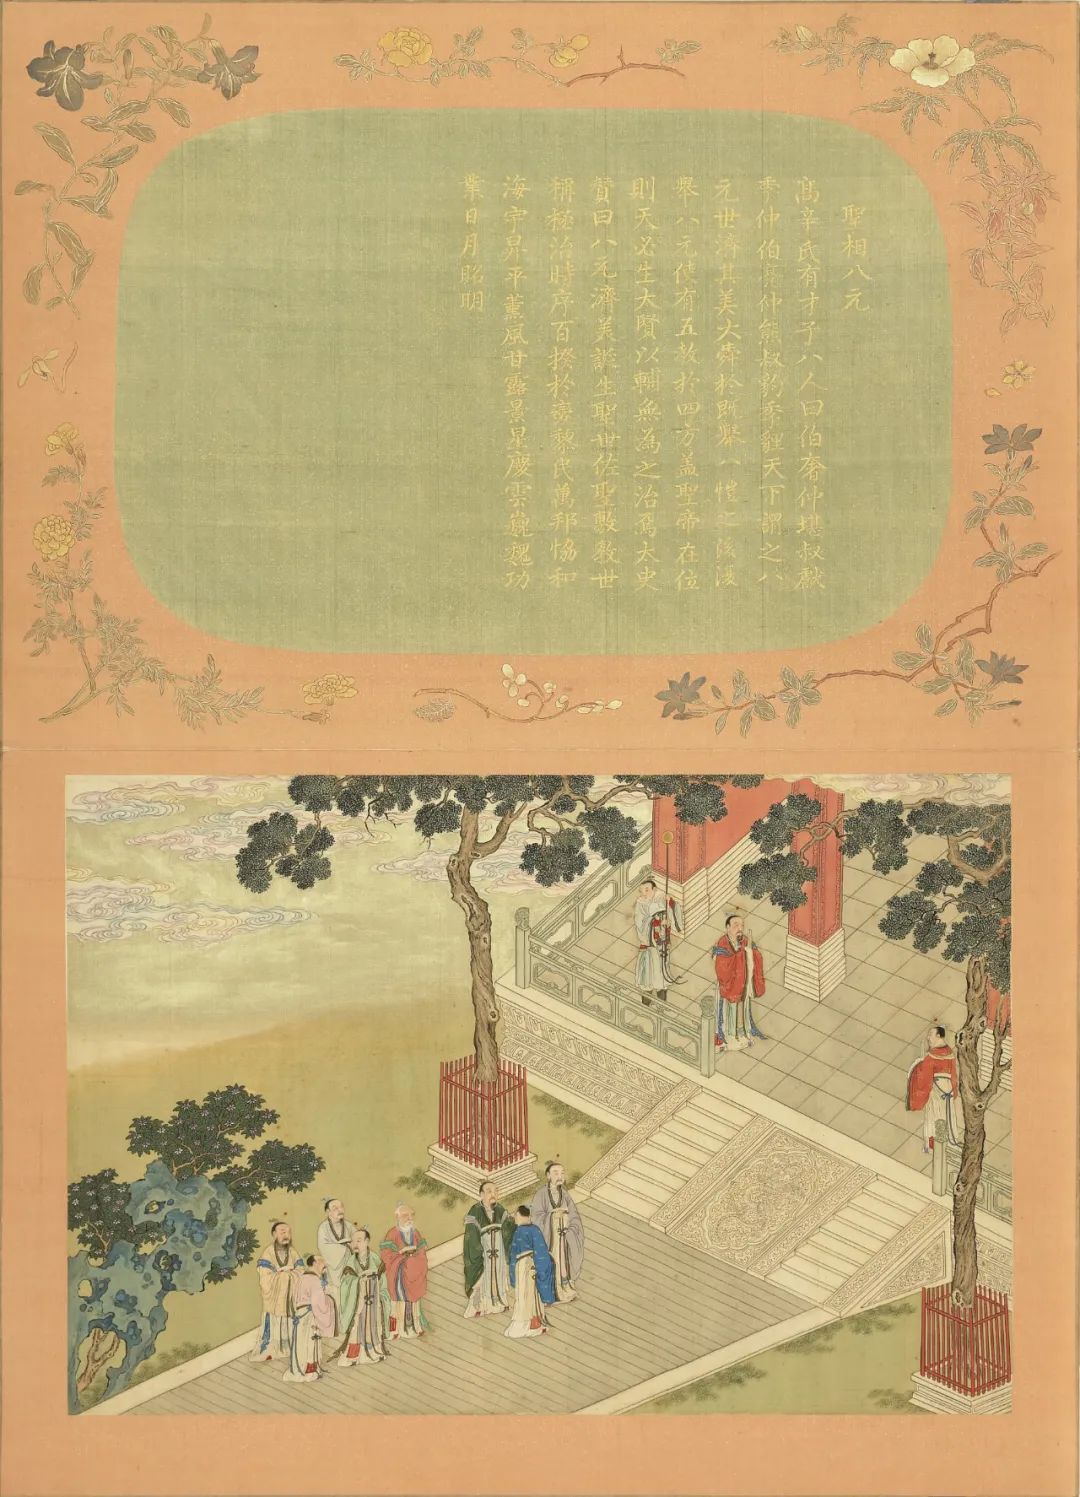 聖相八元
髙辛氏有才子八人曰伯奮仲堪叔獻
季仲伯虎仲熊叔豹季貍天下謂之八
元世濟其美大舜於既舉八愷之後復
舉八元使有五教於四方蓋聖帝在位
則天必生大賢以輔無為之治焉太史
贊曰八元濟美誕生聖世佐聖敷教世
稱極治時序百揆於變黎民萬邦恊和
海宇昇平薰風甘露景星慶雲巍巍功
業日月昭明